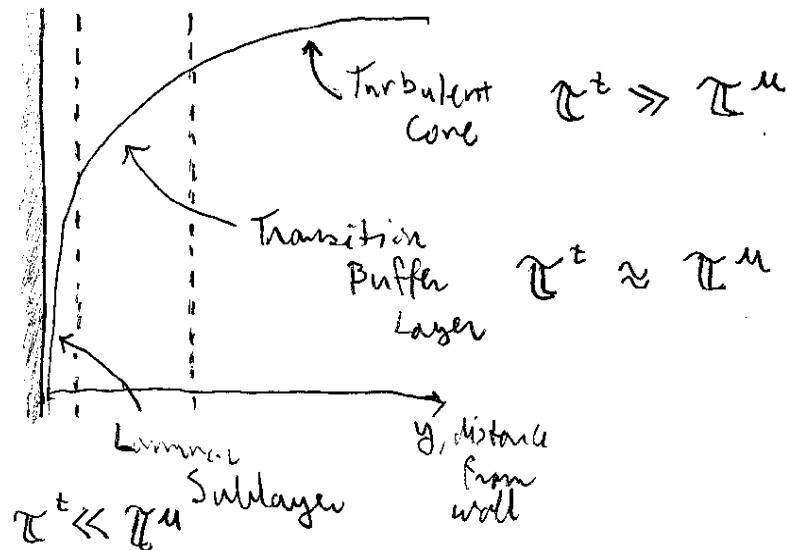 Turbulent
Core
𝕋ᵗ ≫ 𝕋ᵘ
Transition
Buffer
Layer
𝕋ᵗ ≈ 𝕋ᵘ
Laminar
Sublayer
𝕋ᵗ ≪ 𝕋ᵘ
y, distance
from
wall